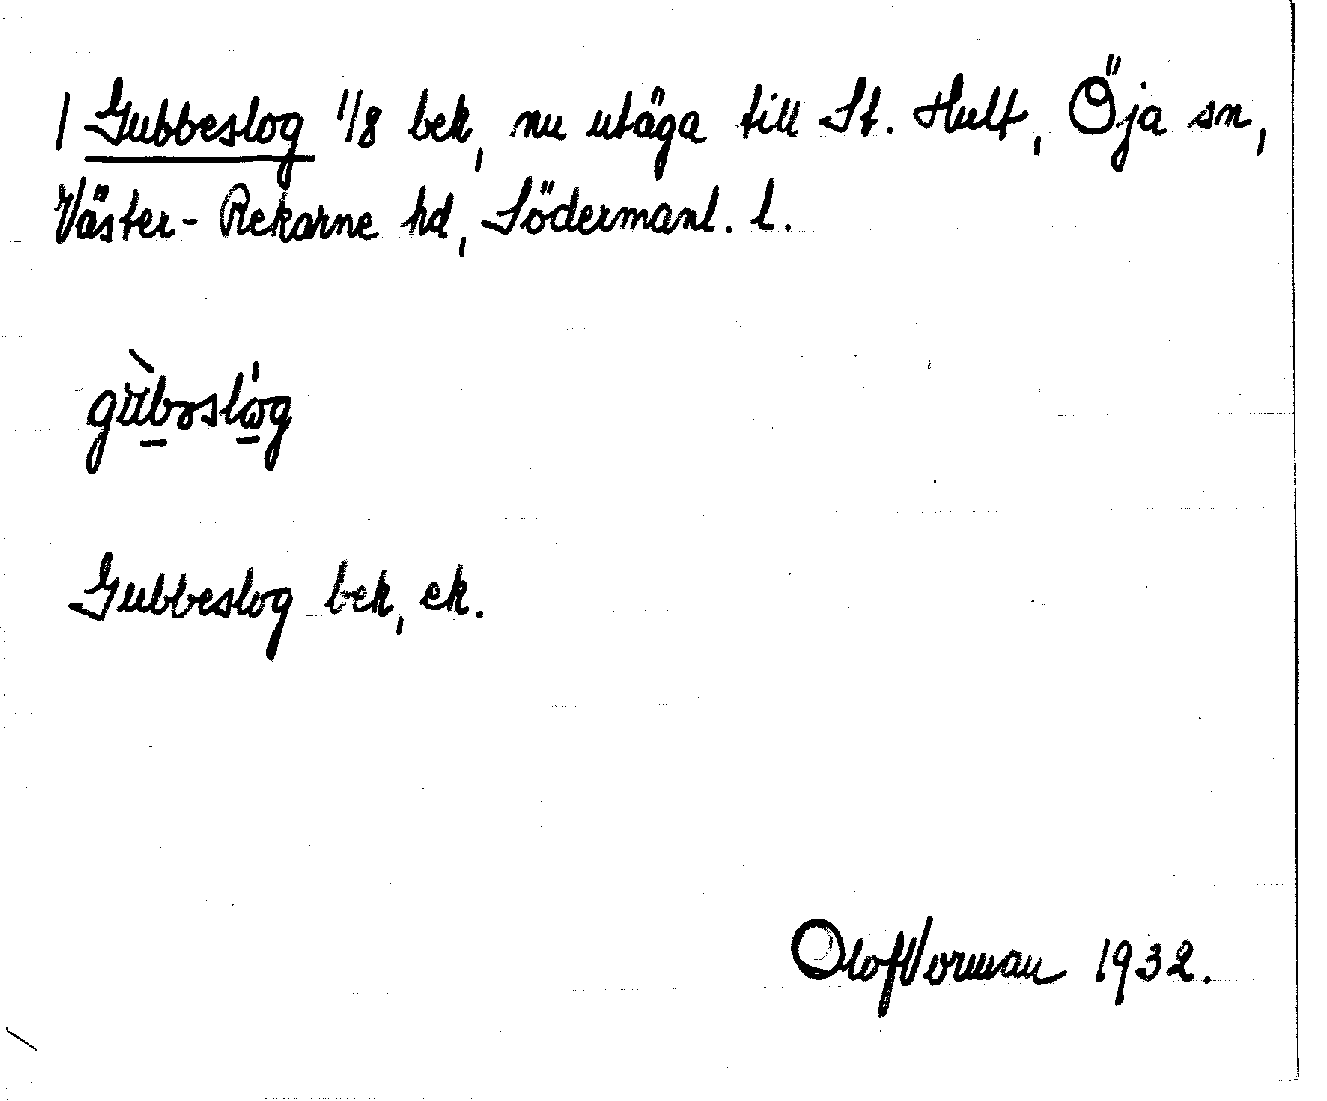 | Gubbeslog 1/8 bek, nu utäga till St. Hult, Öja sn,
Väster-Rekarne hd, Södermanl. l.
gùb̲əslώ̲g
Gubbeslog bek, ek.
Olof Vorman 1932.